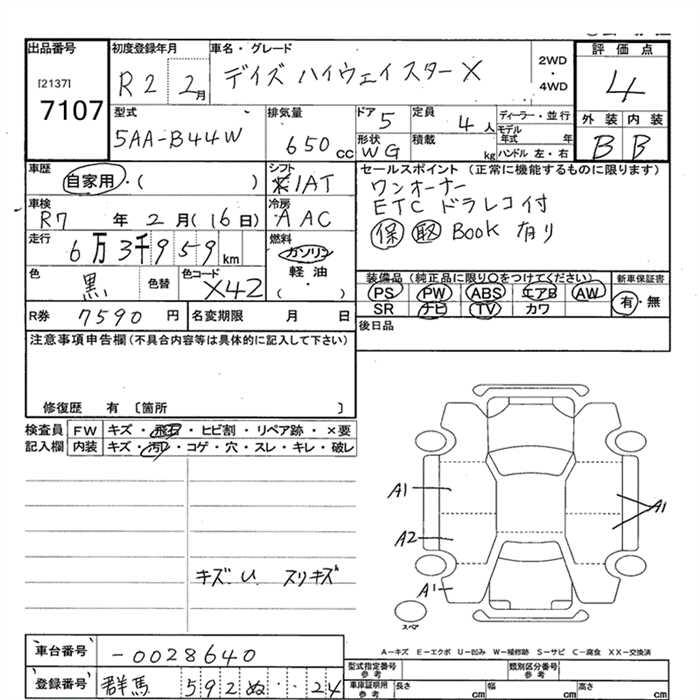 出品番号
[2137]
7107
初度登録年月
R2 2月
車名・グレード
デイズ ハイウェイスターX
2WD
・
4WD
評価点
4
型式
5AA-B44W
排気量
650cc
ドア
5
定員
4人
形状
WG
積載
kg
ディーラー・並行
モデル年式 年
ハンドル 左・右
外装 内装
B B
車歴
自家用・( )
シフト
IAT
車検
R7年2月(16日)
冷房
AAC
走行
6万3千959km
燃料
ガソリン
軽油
・( )
色
黒
色替
色コード
X42
R券 7590円
名変期限 月 日
セールスポイント (正常に機能するものに限ります)
ワンオーナー
ETC ドラレコ付
保 取 Book 有り
装備品(純正品に限り○をつけてください)
新車保証書
PS PW ABS エアB AW
SR ナビ TV カワ
有・無
後日品
注意事項申告欄(不具合内容等は具体的に記入して下さい)
修復歴 有 〔箇所 〕
検査員記入欄
FW キズ・飛石・ヒビ割・リペア跡・×要
内装 キズ・汚れ・コゲ・穴・スレ・キレ・破レ
キズ. U. スリキズ
A1
A1
A2
A1
スペア
A−キズ E−エクボ U−凹み W−補修跡 S−サビ C−腐食 XX−交換済
車台番号 -0028640
登録番号 群馬 592 ぬ ・・24
型式指定番号 参考
類別区分番号 参考
車庫証明用 参考
長さ cm 幅 cm 高さ cm